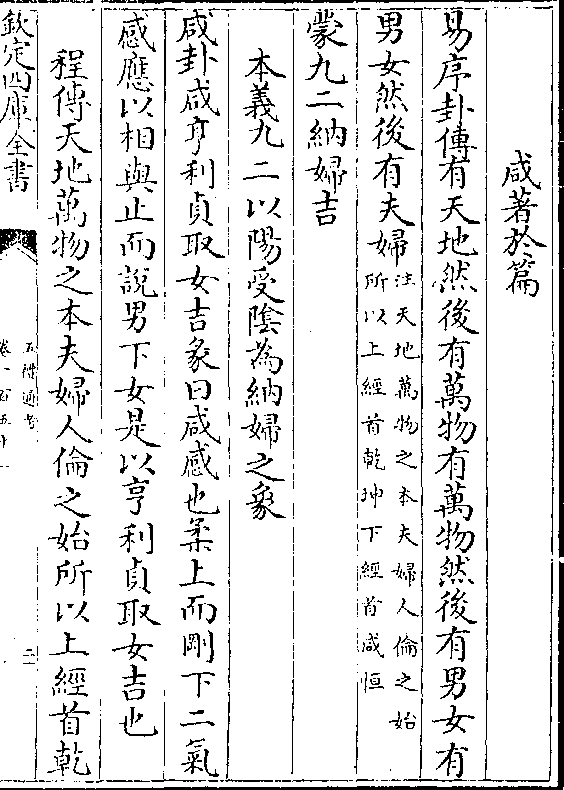 咸著於篇
易序卦傳有天地然後有萬物有萬物然後有男女有
男女然後有夫婦注天地萬物之本夫婦人倫之始
所以上經首乾坤下經首咸恒
蒙九二納婦吉
本義九二以陽受陰為納婦之象
咸卦咸亨利貞取女吉彖曰咸感也柔上而剛下二氣
感應以相與止而說男下女是以亨利貞取女吉也
程傳天地萬物之本夫婦人倫之始所以上經首乾
欽定四庫全書
五禮通考
卷一百五十一
二